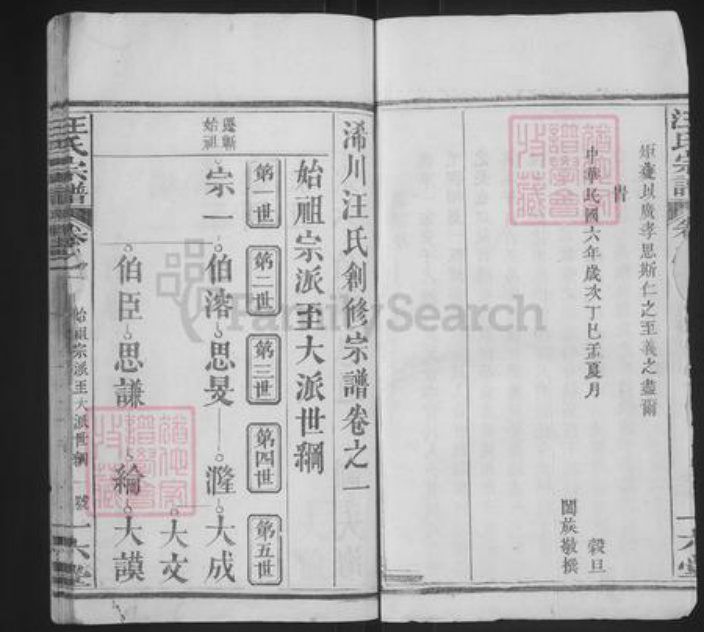 汪氏宗譜
矩䕫以廣孝思斯仁之至義之盡爾
旹
中華民國六年歲次丁巳孟夏月
穀旦
闔族敬撰
浠川汪氏創修宗譜卷之一
始祖宗派至大派世綱
第一世
第二世
第三世
第四世
第五世
遷浠始祖
宗一
伯溶
思旻
澨
大成
大文
伯臣
思謙
綸
大謨
汪氏宗譜
卷之一
始祖宗派至大派世綱
一號
一六堂
FamilySearch